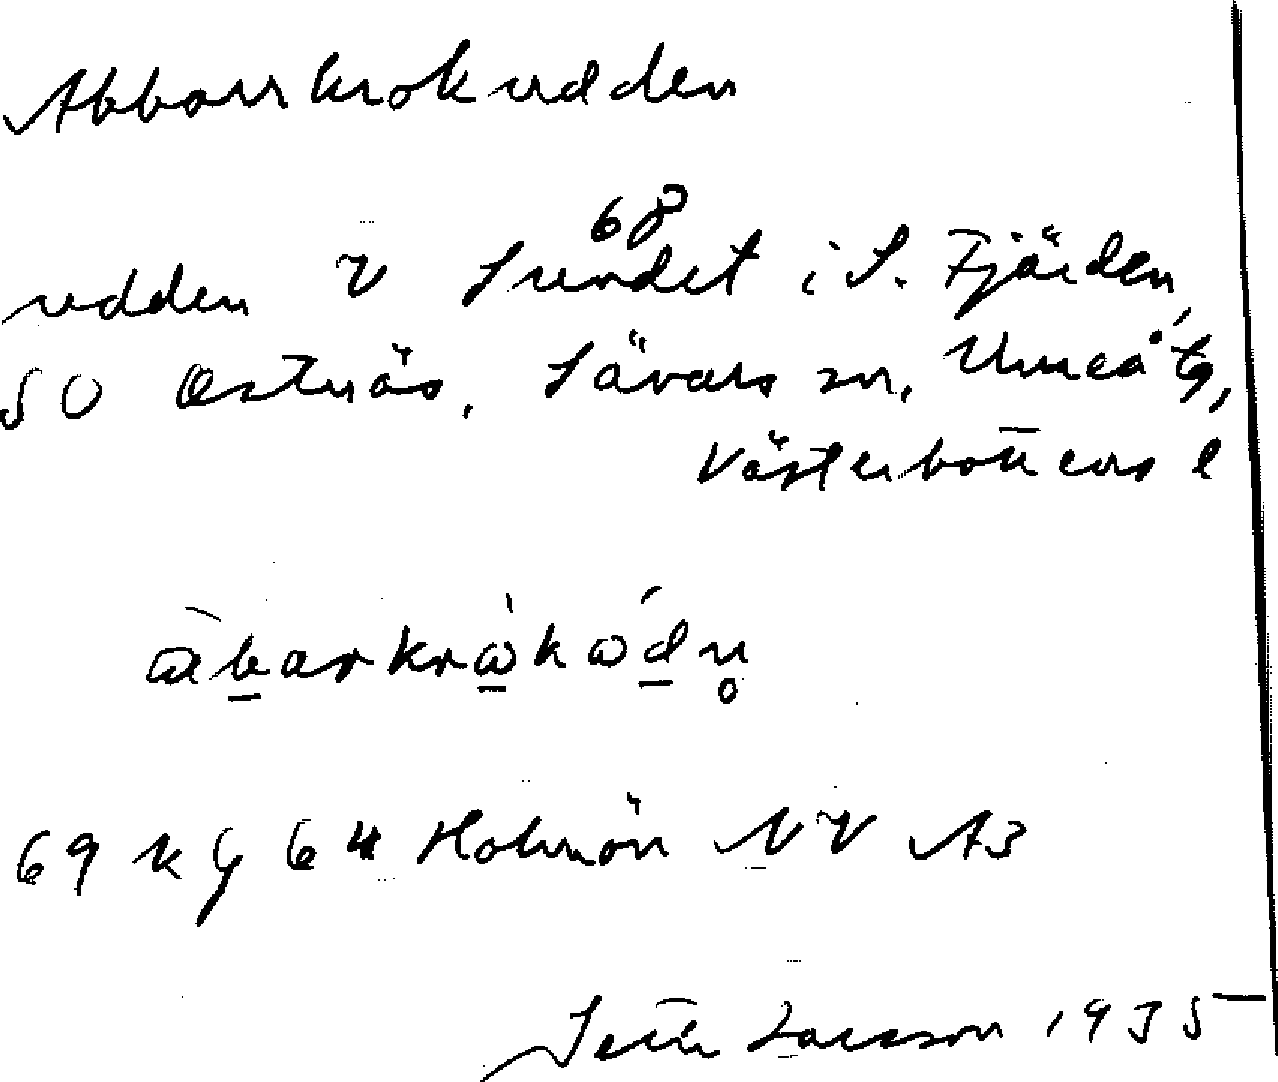 Abborrkrokudden
68
udden V Sundet i S. Fjärden,
SO Ostnäs, Sävars sn, Umeå tg,
Västerbottens l
69 Kg 64 Holmön NV A3
Larsson 1935